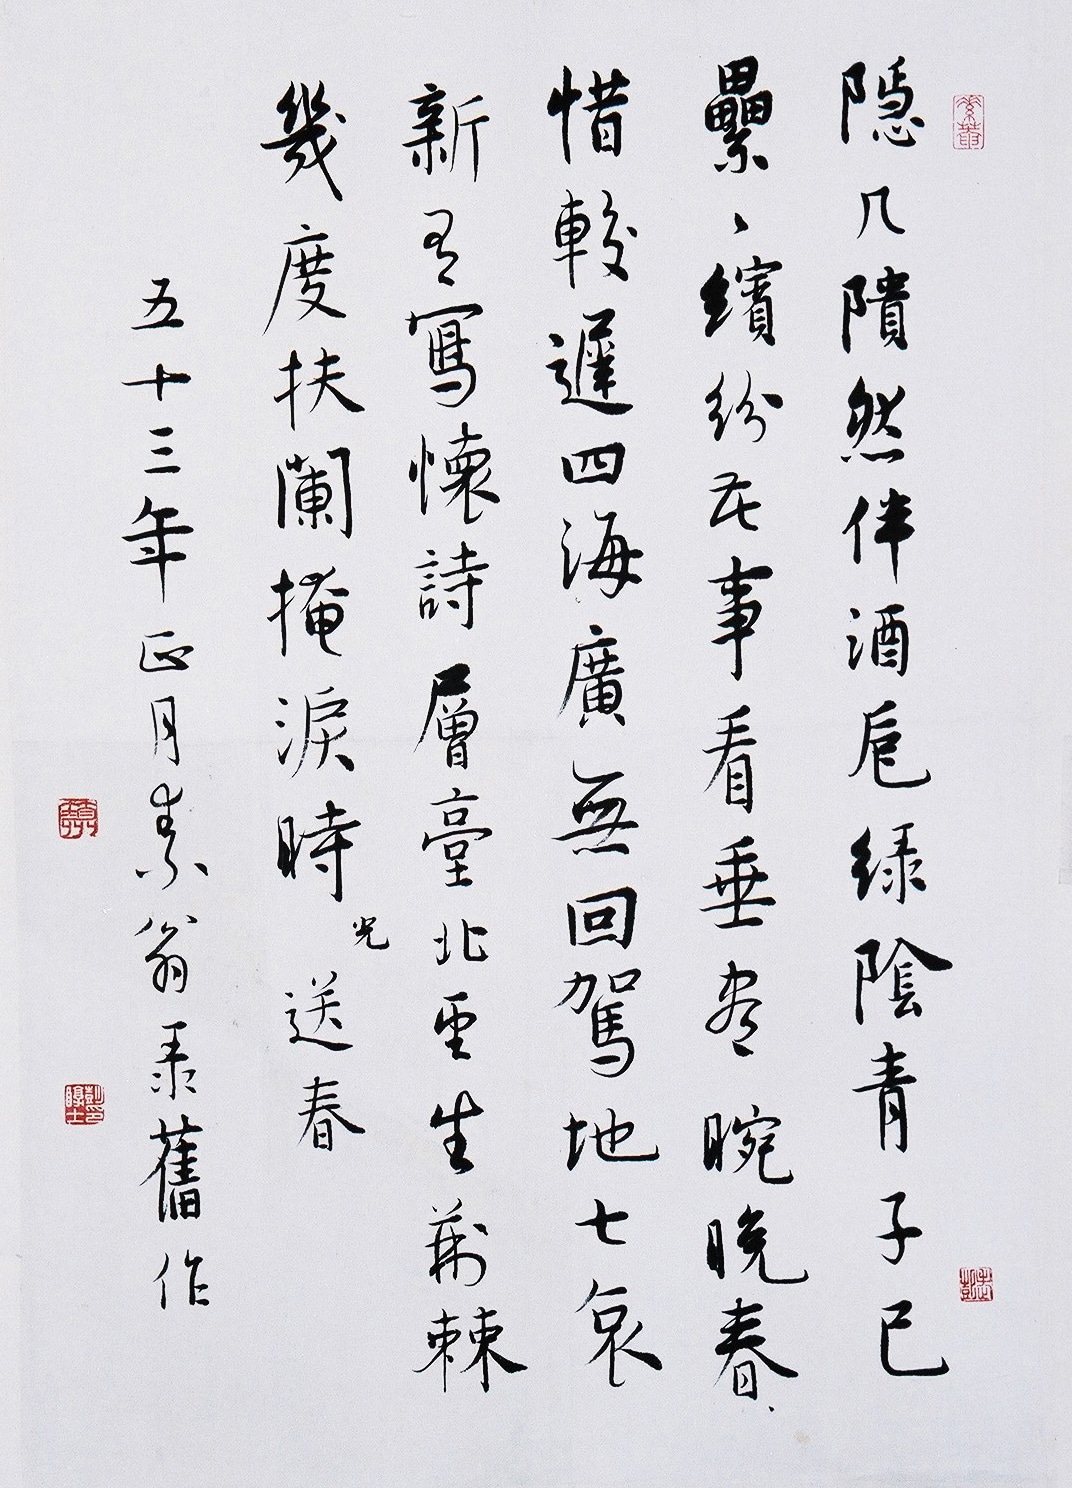 隱几隤然伴酒巵綠陰青子已
纍〻繽紛花事看垂盡晼晚春
惜較遲四海廣無回駕地七哀
新有寫懷詩層臺北望生荊棘
幾度扶闌掩淚時 光 送春
五十三年正月素翁录舊作
彭印醇士